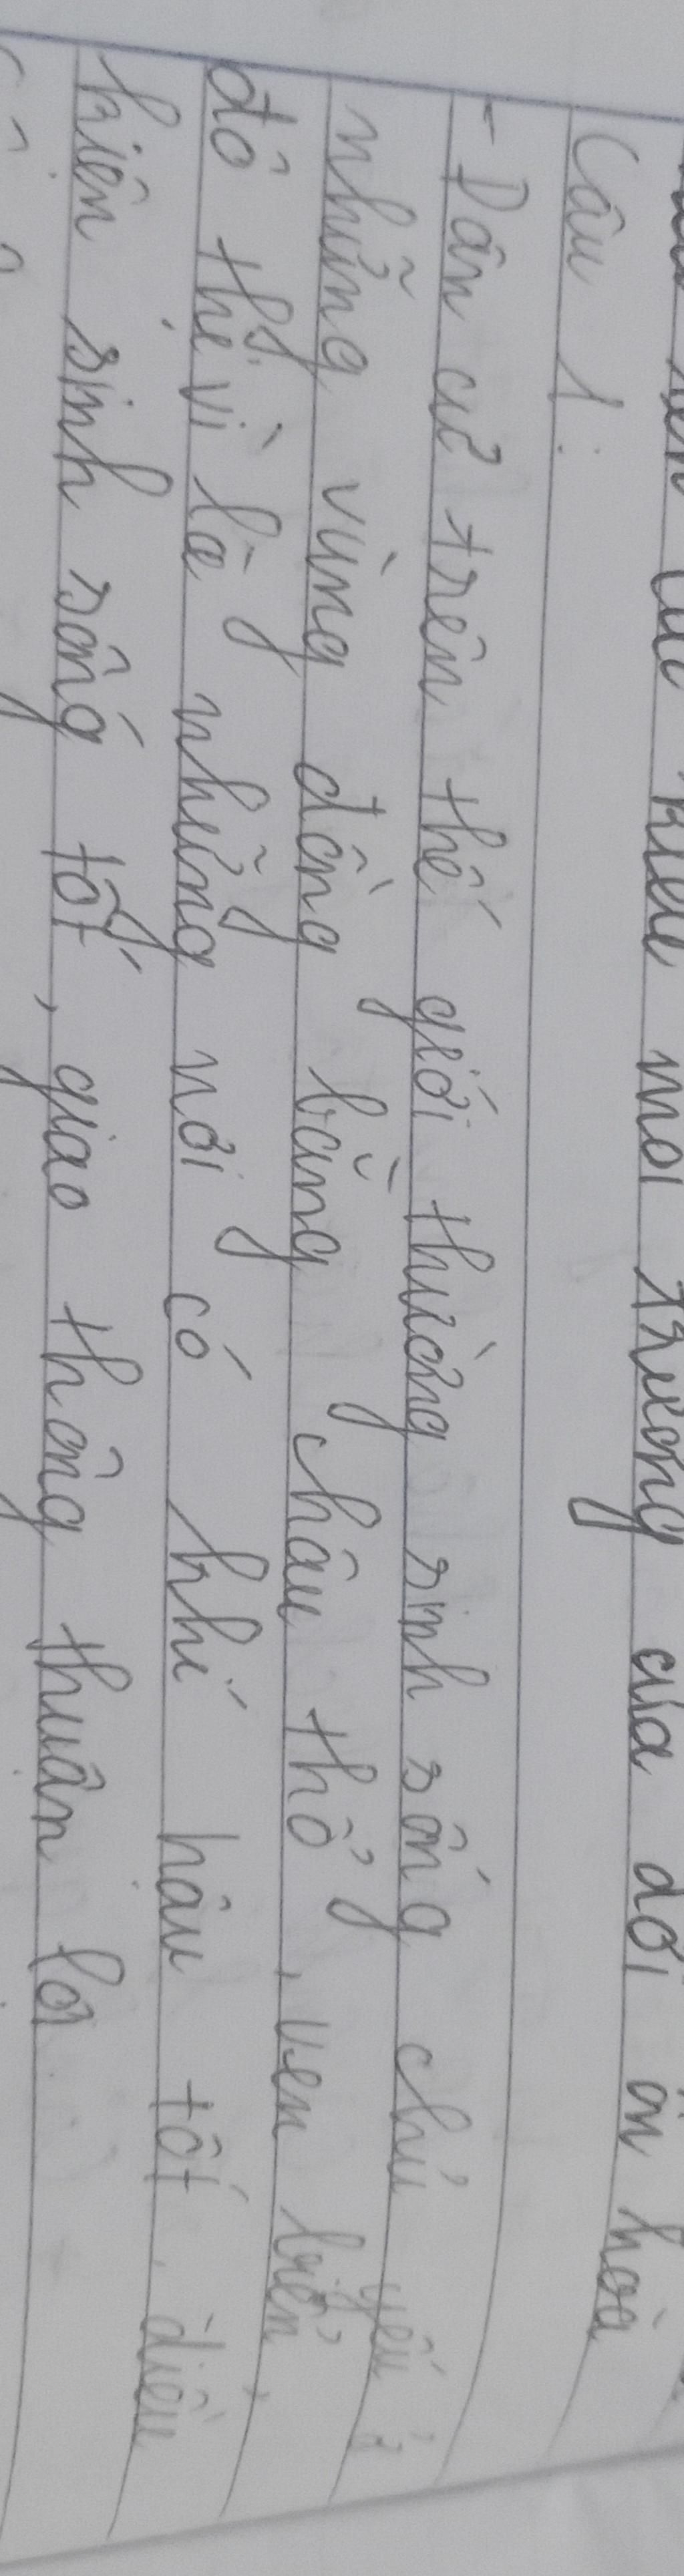 kiểu môi trường của đới ôn hoà
Câu 1:
- Dân cư trên thế giới thường sinh sống chủ yếu ở
những vùng đồng bằng châu thổ, ven biển,
đô thị vì là những nơi có khí hậu tốt, điều
kiện sinh sống tốt, giao thông thuận lợi